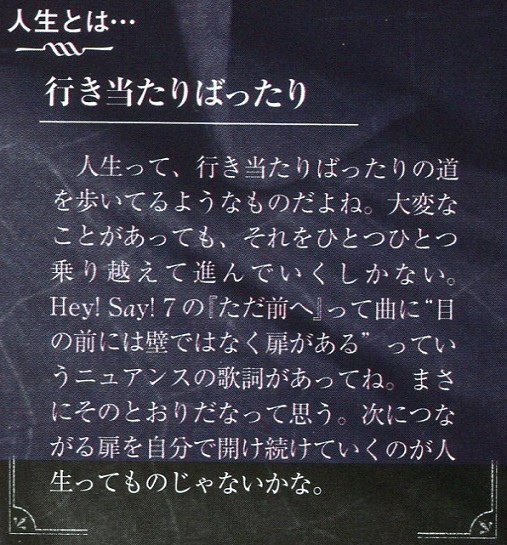 人生とは…
行き当たりばったり
人生って、行き当たりばったりの道
を歩いてるようなものだよね。大変な
ことがあっても、それをひとつひとつ
乗り越えて進んでいくしかない。
Hey! Say! 7の『ただ前へ』って曲に“目
の前には壁ではなく扉がある”ってい
うニュアンスの歌詞があってね。まさ
にそのとおりだなって思う。次につな
がる扉を自分で開け続けていくのが人
生ってものじゃないかな。